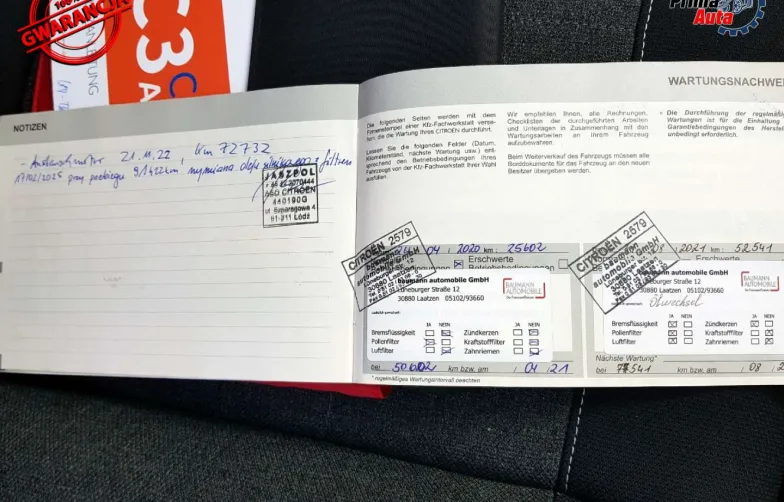 GWARANCJA
C3
Prima
Auto
NOTIZEN
- Austauschmotor 21.11.22, km 72732
17/02/2025 przy przebiegu 91422km, wymiana oleju silnikowego z filtrem
JASZPOL
ASO CITROËN
440190G
ul. Szparagowa 4
91-211 Łódź
WARTUNGSNACHWE
Die folgenden Seiten werden mit dem
Firmenstempel einer Kfz-Fachwerkstatt verse-
hen, die die Wartung Ihres CITROËN durchführt.
Lassen Sie die folgenden Felder (Datum,
Kilometerstand, nächste Wartung usw.) ent-
sprechend den Betriebsbedingungen Ihres
Fahrzeugs von der Kfz-Fachwerkstatt Ihrer Wahl
ausfüllen.
Wir empfehlen Ihnen, alle Rechnungen,
Checklisten der durchgeführten Arbeiten
und Unterlagen in Zusammenhang mit den
Wartungsarbeiten an Ihrem Fahrzeug
aufzubewahren.
Beim Weiterverkauf des Fahrzeugs müssen alle
Borddokumente für das Fahrzeug an den neuen
Besitzer übergeben werden.
• Die Durchführung der regelmäß
Wartungen ist für die Einhaltung
Garantiebedingungen des Herste
unbedingt erforderlich.
04 2020 km: 25602
Erschwerte
Betriebsbedingungen
CITROËN 2579
baumann
automobile GmbH
baumann automobile GmbH
Lüneburger Straße 12
30880 Laatzen 05102/93660
BAUMANN
AUTOMOBILE
JA NEIN JA NEIN
Bremsflüssigkeit Zündkerzen
Pollenfilter Kraftstofffilter
Luftfilter Zahnriemen
bei 50602 km bzw. am 04 21
* regelmäßiges Wartungsintervall beachten
08 2021 km: 52.541
Erschwerte
CITROËN 2579
baumann
automobile GmbH
baumann automobile GmbH
Lüneburger Straße 12
30880 Laatzen 05102/93660
BAUMANN
AUTOMOBILE
Ölwechsel
JA NEIN JA NEIN
Bremsflüssigkeit Zündkerzen
Pollenfilter Kraftstofffilter
Luftfilter Zahnriemen
Nächste Wartung*
bei 77541 km bzw. am / 08 / 2